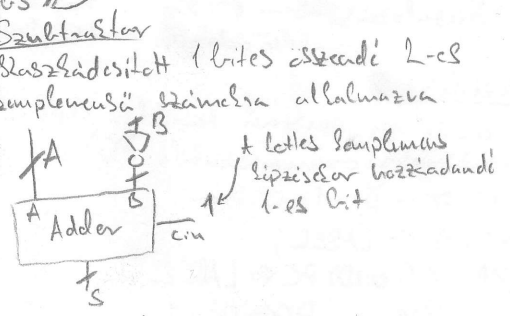 Szubtraktor
kaszkádosított 1 bites összeadó 2-es
komplemensű számokra alkalmazva
A
B
A kettes komplemens
képzéskor hozzáadandó
1-es bit
A
B
Adder
cin
1
S